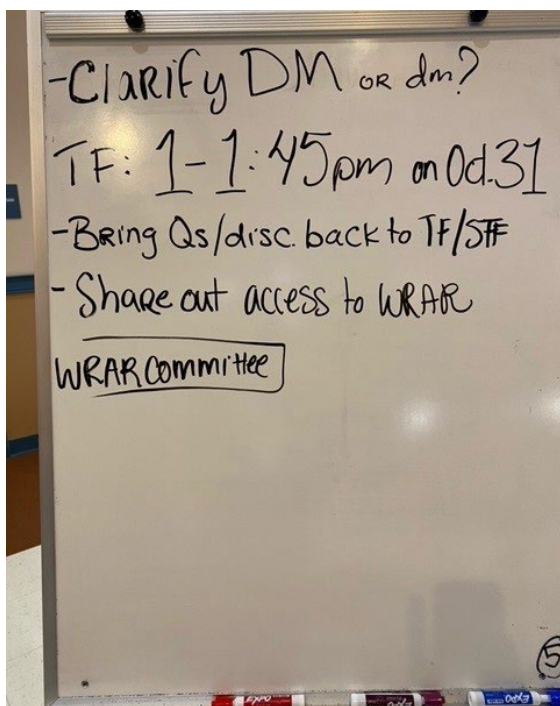 -Clarify DM or dm?
TF: 1-1:45pm on Oct.31
-Bring Qs/disc. back to TF/STF
- Share out access to WRAR
WRAR Committee
5
EXPO
EXPO
EXPO